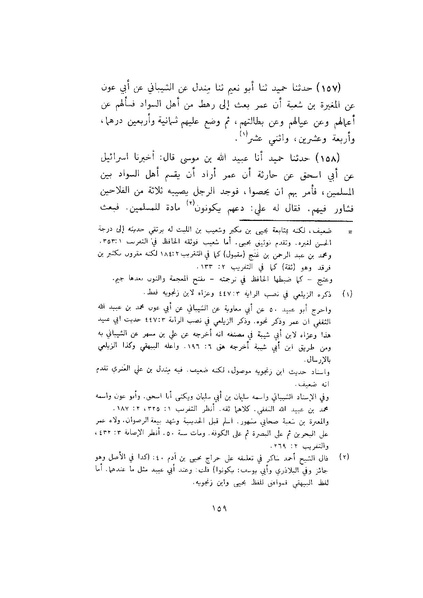 (١٥٧) حدثنا حميد ثنا أبو نعيم ثنا مندل عن الشيباني عن أبي عون
عن المغيرة بن شعبة أن عمر بعث إلى رهط من أهل السواد فسألهم عن
أعمالهم وعن عيالهم وعن بطالتهم، ثم وضع عليهم ثمانية وأربعين درهما،
وأربعة وعشرين، واثني عشر(١).
(١٥٨) حدثنا حميد أنا عبيد الله بن موسى قال: أخبرنا اسرائيل
عن أبي اسحق عن حارثة أن عمر أراد أن يقسم أهل السواد بين
المسلمين، فأمر بهم ان يحصوا، فوجد الرجل يصيبه ثلاثة من الفلاحين
فشاور فيهم. فقال له علي: دعهم يكونون(٢) مادة للمسلمين. فبعث
* ضعيف، لكنه بمتابعة يحيى بن بكير وشعيب بن الليث له يرتقي حديثه إلى درجة
الحسن لغيره. وتقدم توثيق يحيى. أما شعيب فوثقه الحافظ في التقريب ١: ٣٥٣.
ومحمد بن عبد الرحمن بن غنج (مقبول) كما في التقريب ٢: ١٨٤ لكنه مقرون بكثير بن
فرقد وهو (ثقة) كما في التقريب ٢: ١٣٣.
وغنج - كما ضبطها الحافظ في ترجمته - بفتح المعجمة والنون بعدها جيم.
(١) ذكره الزيلعي في نصب الراية ٣: ٤٤٧ وعزاه لابن زنجويه فقط.
واخرج أبو عبيد ٥٠ عن أبي معاوية عن الشيباني عن أبي عون محمد بن عبيد الله
الثقفي ان عمر وذكر نحوه. وذكر الزيلعي في نصب الراية ٣: ٤٤٧ حديث أبي عبيد
هذا وعزاه لابن أبي شيبة في مصنفه انه أخرجه عن علي بن مسهر عن الشيباني به
ومن طريق ابن أبي شيبة أخرجه هق ٩: ١٩٦. واعله البيهقي وكذا الزيلعي
بالإرسال.
واسناد حديث ابن زنجويه موصول، لكنه ضعيف. فيه مندل بن علي العنزي تقدم
انه ضعيف.
وفي الإسناد الشيباني واسمه سليمان بن أبي سليمان ويكنى أبا اسحق. وأبو عون واسمه
محمد بن عبيد الله الثقفي. كلاهما ثقة. أنظر التقريب ١: ٣٢٥، ٢: ١٨٧.
والمغيرة بن شعبة صحابي مشهور. اسلم قبل الحديبية وشهد بيعة الرضوان، ولاه عمر
على البحرين ثم على البصرة ثم على الكوفة. ومات سنة ٥٠. أنظر الإصابة ٣: ٤٣٢،
والتقريب ٢: ٢٦٩.
(٢) قال الشيخ أحمد شاكر في تعليقه على خراج يحيى بن آدم ٤٠: (كذا في الأصل وهو
جائز وفي البلاذري وأبي يوسف: يكونوا) قلت: وعند أبي عبيد مثل ما عندهما. أما
لفظ البيهقي فموافق للفظ يحيى وابن زنجويه.
١٥٩